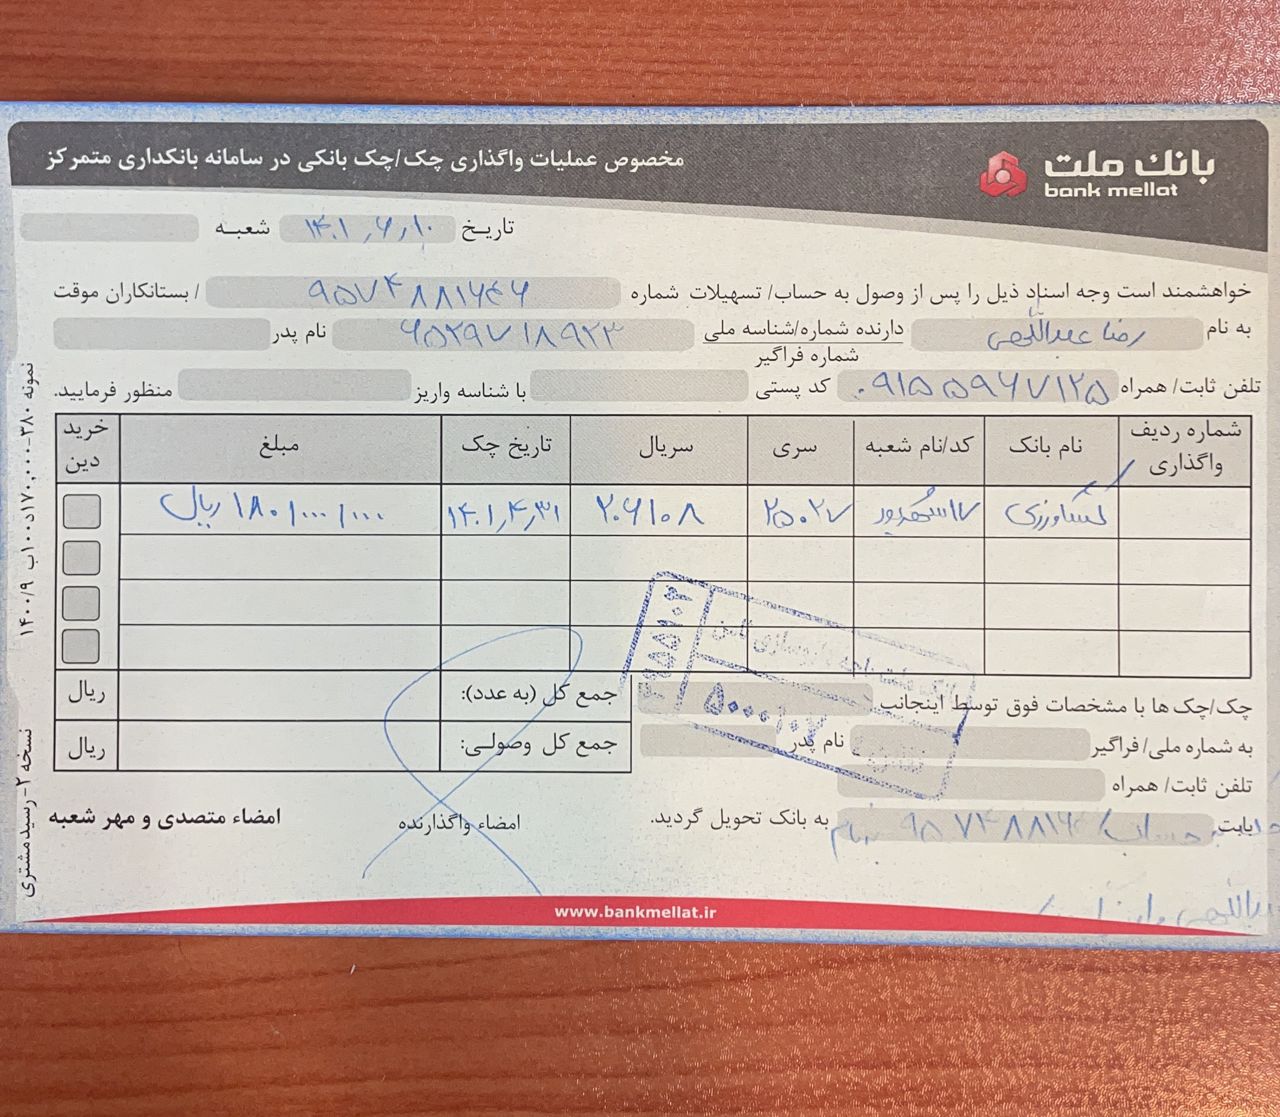 بانك ملت
bank mellat
مخصوص عملیات واگذاری چک/چک بانکی در سامانه بانکداری متمرکز
تاریخ ۱۴۰۱٫۶٫۱۰ شعبه
خواهشمند است وجه اسناد ذیل را پس از وصول به حساب/ تسهیلات شماره / بستانکاران موقت
به نام رضا عبداللهی دارنده شماره/شناسه ملی نام پدر
شماره فراگیر
تلفن ثابت/ همراه ۰۹۱۵۵۹۶۷۱۲۵ کد پستی با شناسه واریز منظور فرمایید.
شماره ردیف واگذاری نام بانک کد/نام شعبه سری سریال تاریخ چک مبلغ خرید دین
کشاورزی ۲۵۰۲۷ ۲۰۶۱۰۸ ۱۴۰۱٫۴٫۳۱ ۱۸۰/۰۰۰/۰۰۰ ریال
جمع کل (به عدد): ریال
جمع کل وصولی: ریال
چک/چک ها با مشخصات فوق توسط اینجانب
به شماره ملی/ فراگیر نام پدر
تلفن ثابت/ همراه
بابت به بانک تحویل گردید.
امضاء واگذارنده
امضاء متصدی و مهر شعبه
۵۰۰۰۱۰۷
www.bankmellat.ir
نسخه ۲- رسید مشتری